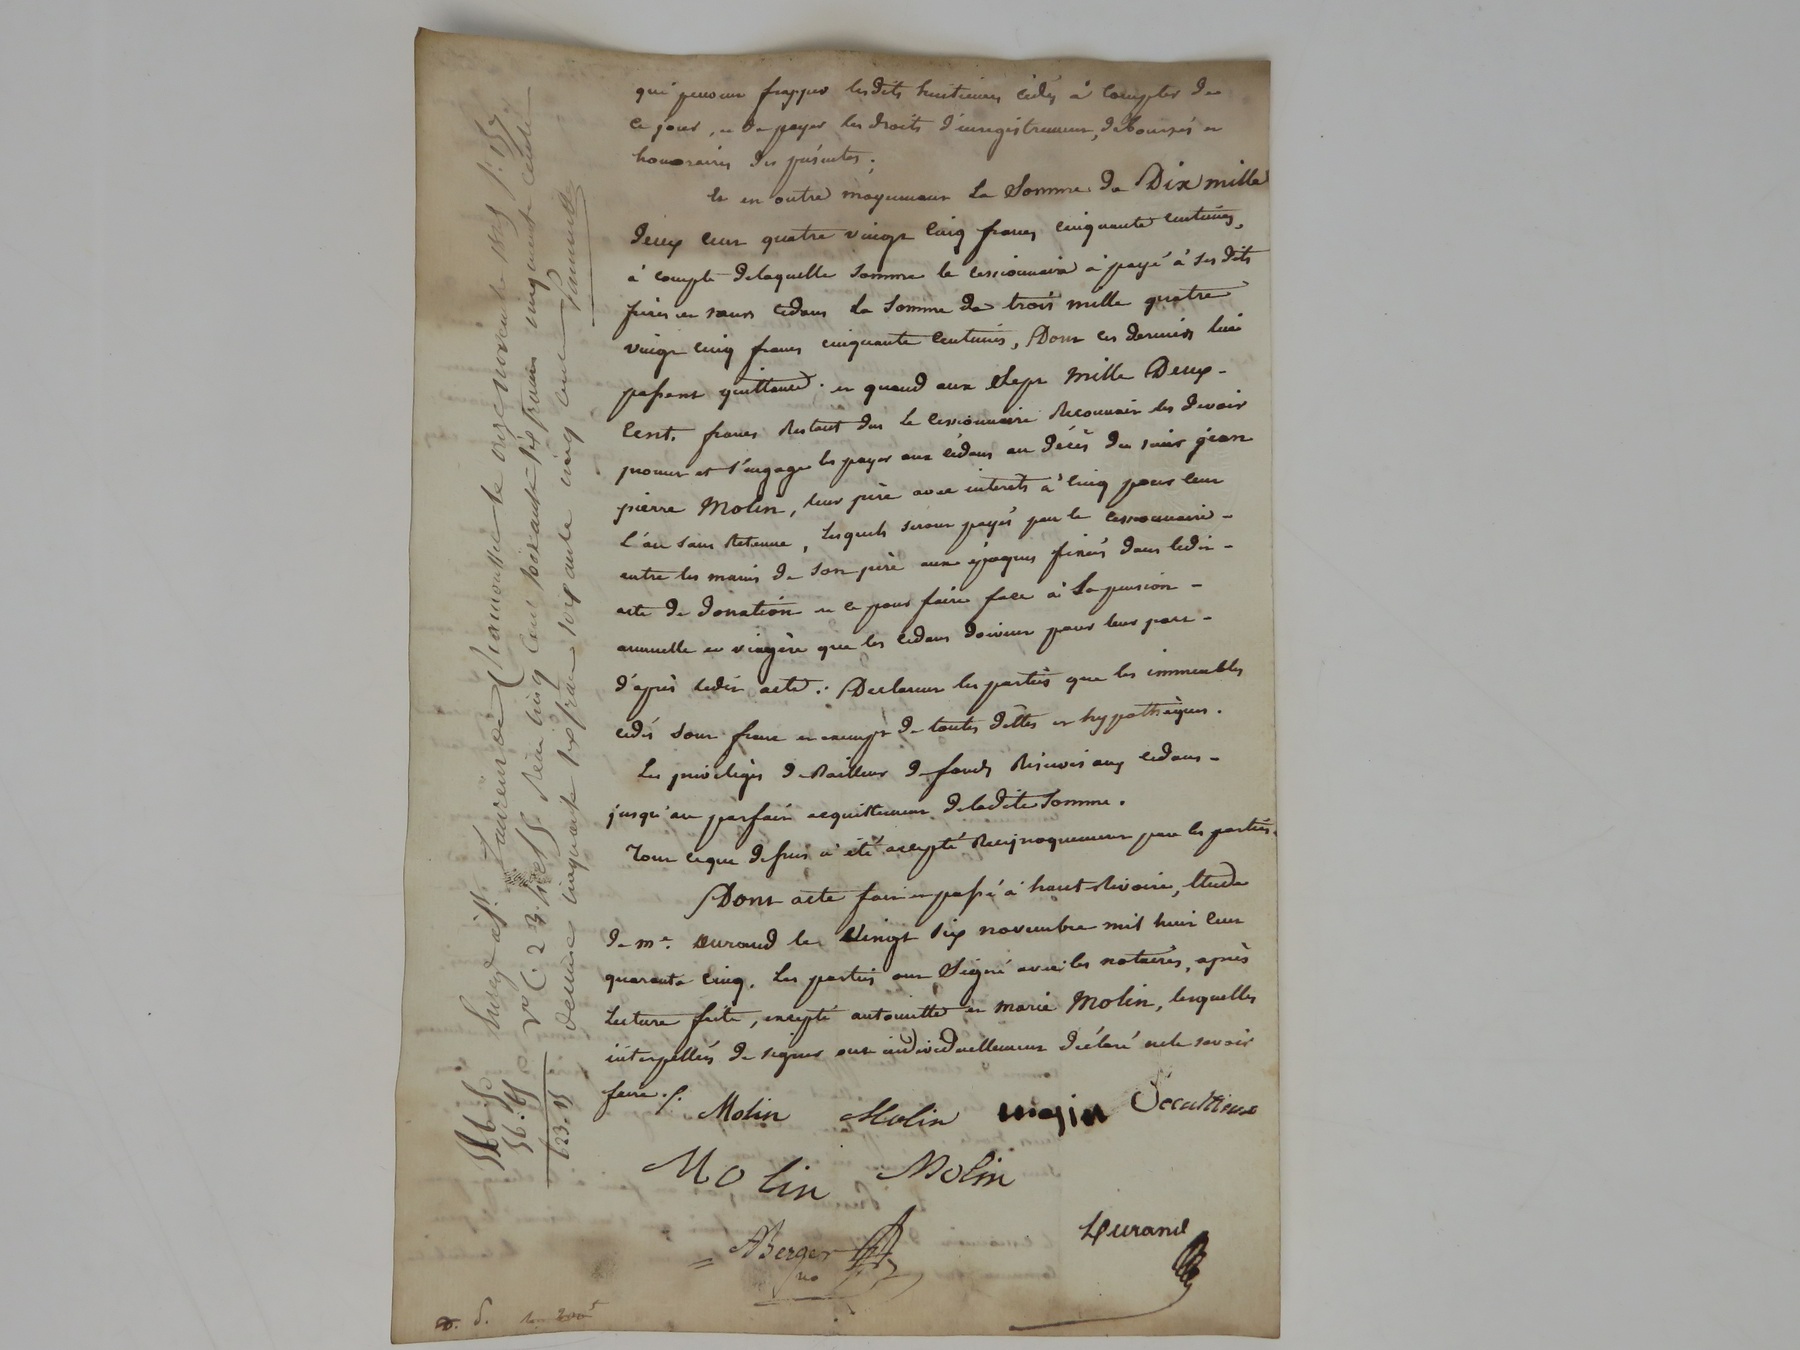 qui peuvent frapper lesdits huitiemes cédés à compter de
ce jour, et de payer les droits d'enregistrement, deboursés et
honoraires des présentes;
Et en outre moyennant La Somme de Dix mille
deux cent quatre vingt cinq francs cinquante centimes,
à compte de laquelle somme le cessionnaire à payé à ses dits
frères et sœurs cédans la somme de trois mille quatre
vingt cinq francs cinquante centimes, Dont ces derniers lui
passent quittance. et quand aux Sept Mille Deux-
Cent francs Restant dus Le Cessionnaire Reconnait les devoir
promet et s'engage les payer aux cédans au décès du sieur jean
pierre Molin, leur père avec interets à cinq pour cent
l'an sans Retenue, Lesquels seront payés par le cessionnaire-
entre les mains de son père aux époques fixées dans ledit-
acte de donation et ce pour faire face à La pension-
annuelle et viagère que les cédans doivent pour leur part-
d'après ledit acte. Declarent les parties que les immeubles
cédés sont franc et exempt de toutes dêttes et hypothèques.
Les privilèges de Bailleur de fonds Réservés aux cédans-
jusqu'au parfait acquittement de ladite Somme.
Tout ce que dessus à été accepté Réciproquement par les parties.
Dont acte fait et passé à haut-Rivoire, Etude
de me. Durand le Vingt Six novembre mil huit cent
quarante cinq. Les parties ont Signé avec les notaires, après
Lecture faite, excepté antoinette et marie Molin, lesquelles
interpellées de signer ont individuellement déclaré ne le savoir
faire./.
Molin Molin Molin
Molin Molin
ABerger Durand
no
Enregé à St. Laurent de Chamousset le onze novembre 1845 fo. 157
vo C. 2 Reçu cinq cent soixante six francs cinquante centimes
decime cinquante six francs soixante cinq cent
566.50
56.65
623.15